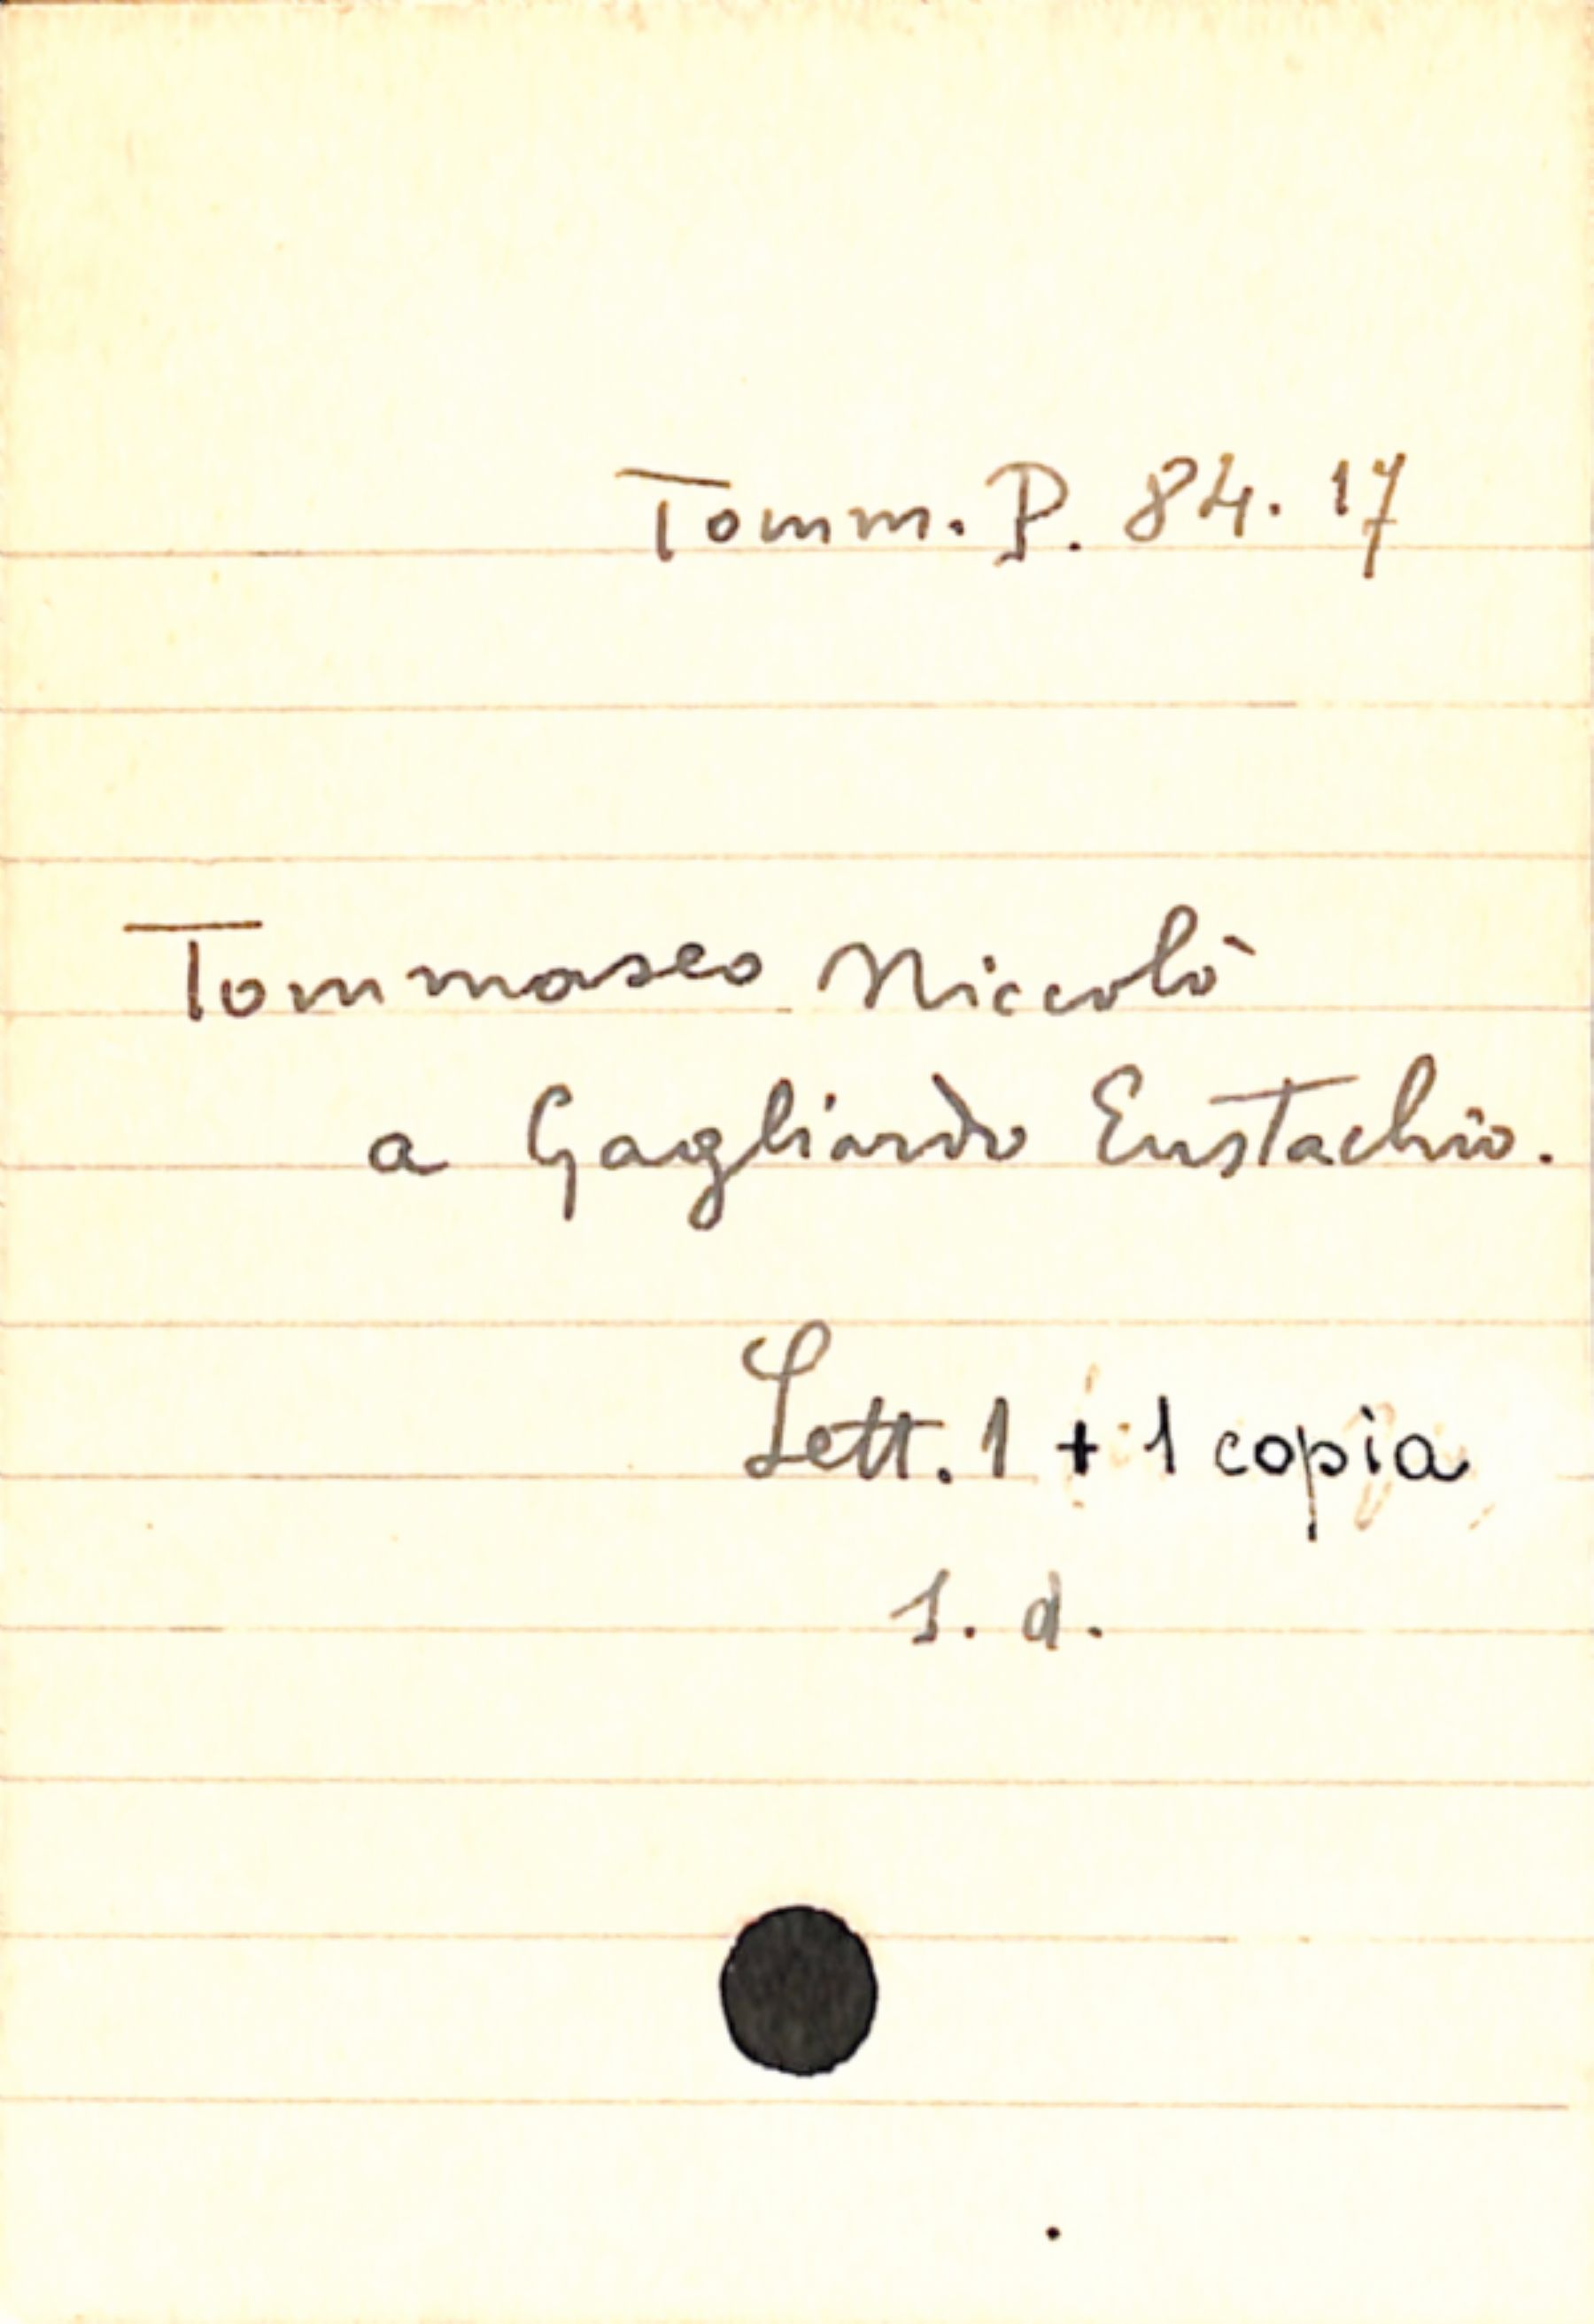 Tomm. P. 84. 17
Tommaseo Niccolò
a Gagliardo Eustachio.
Lett. 1 + 1 copia
s. d.